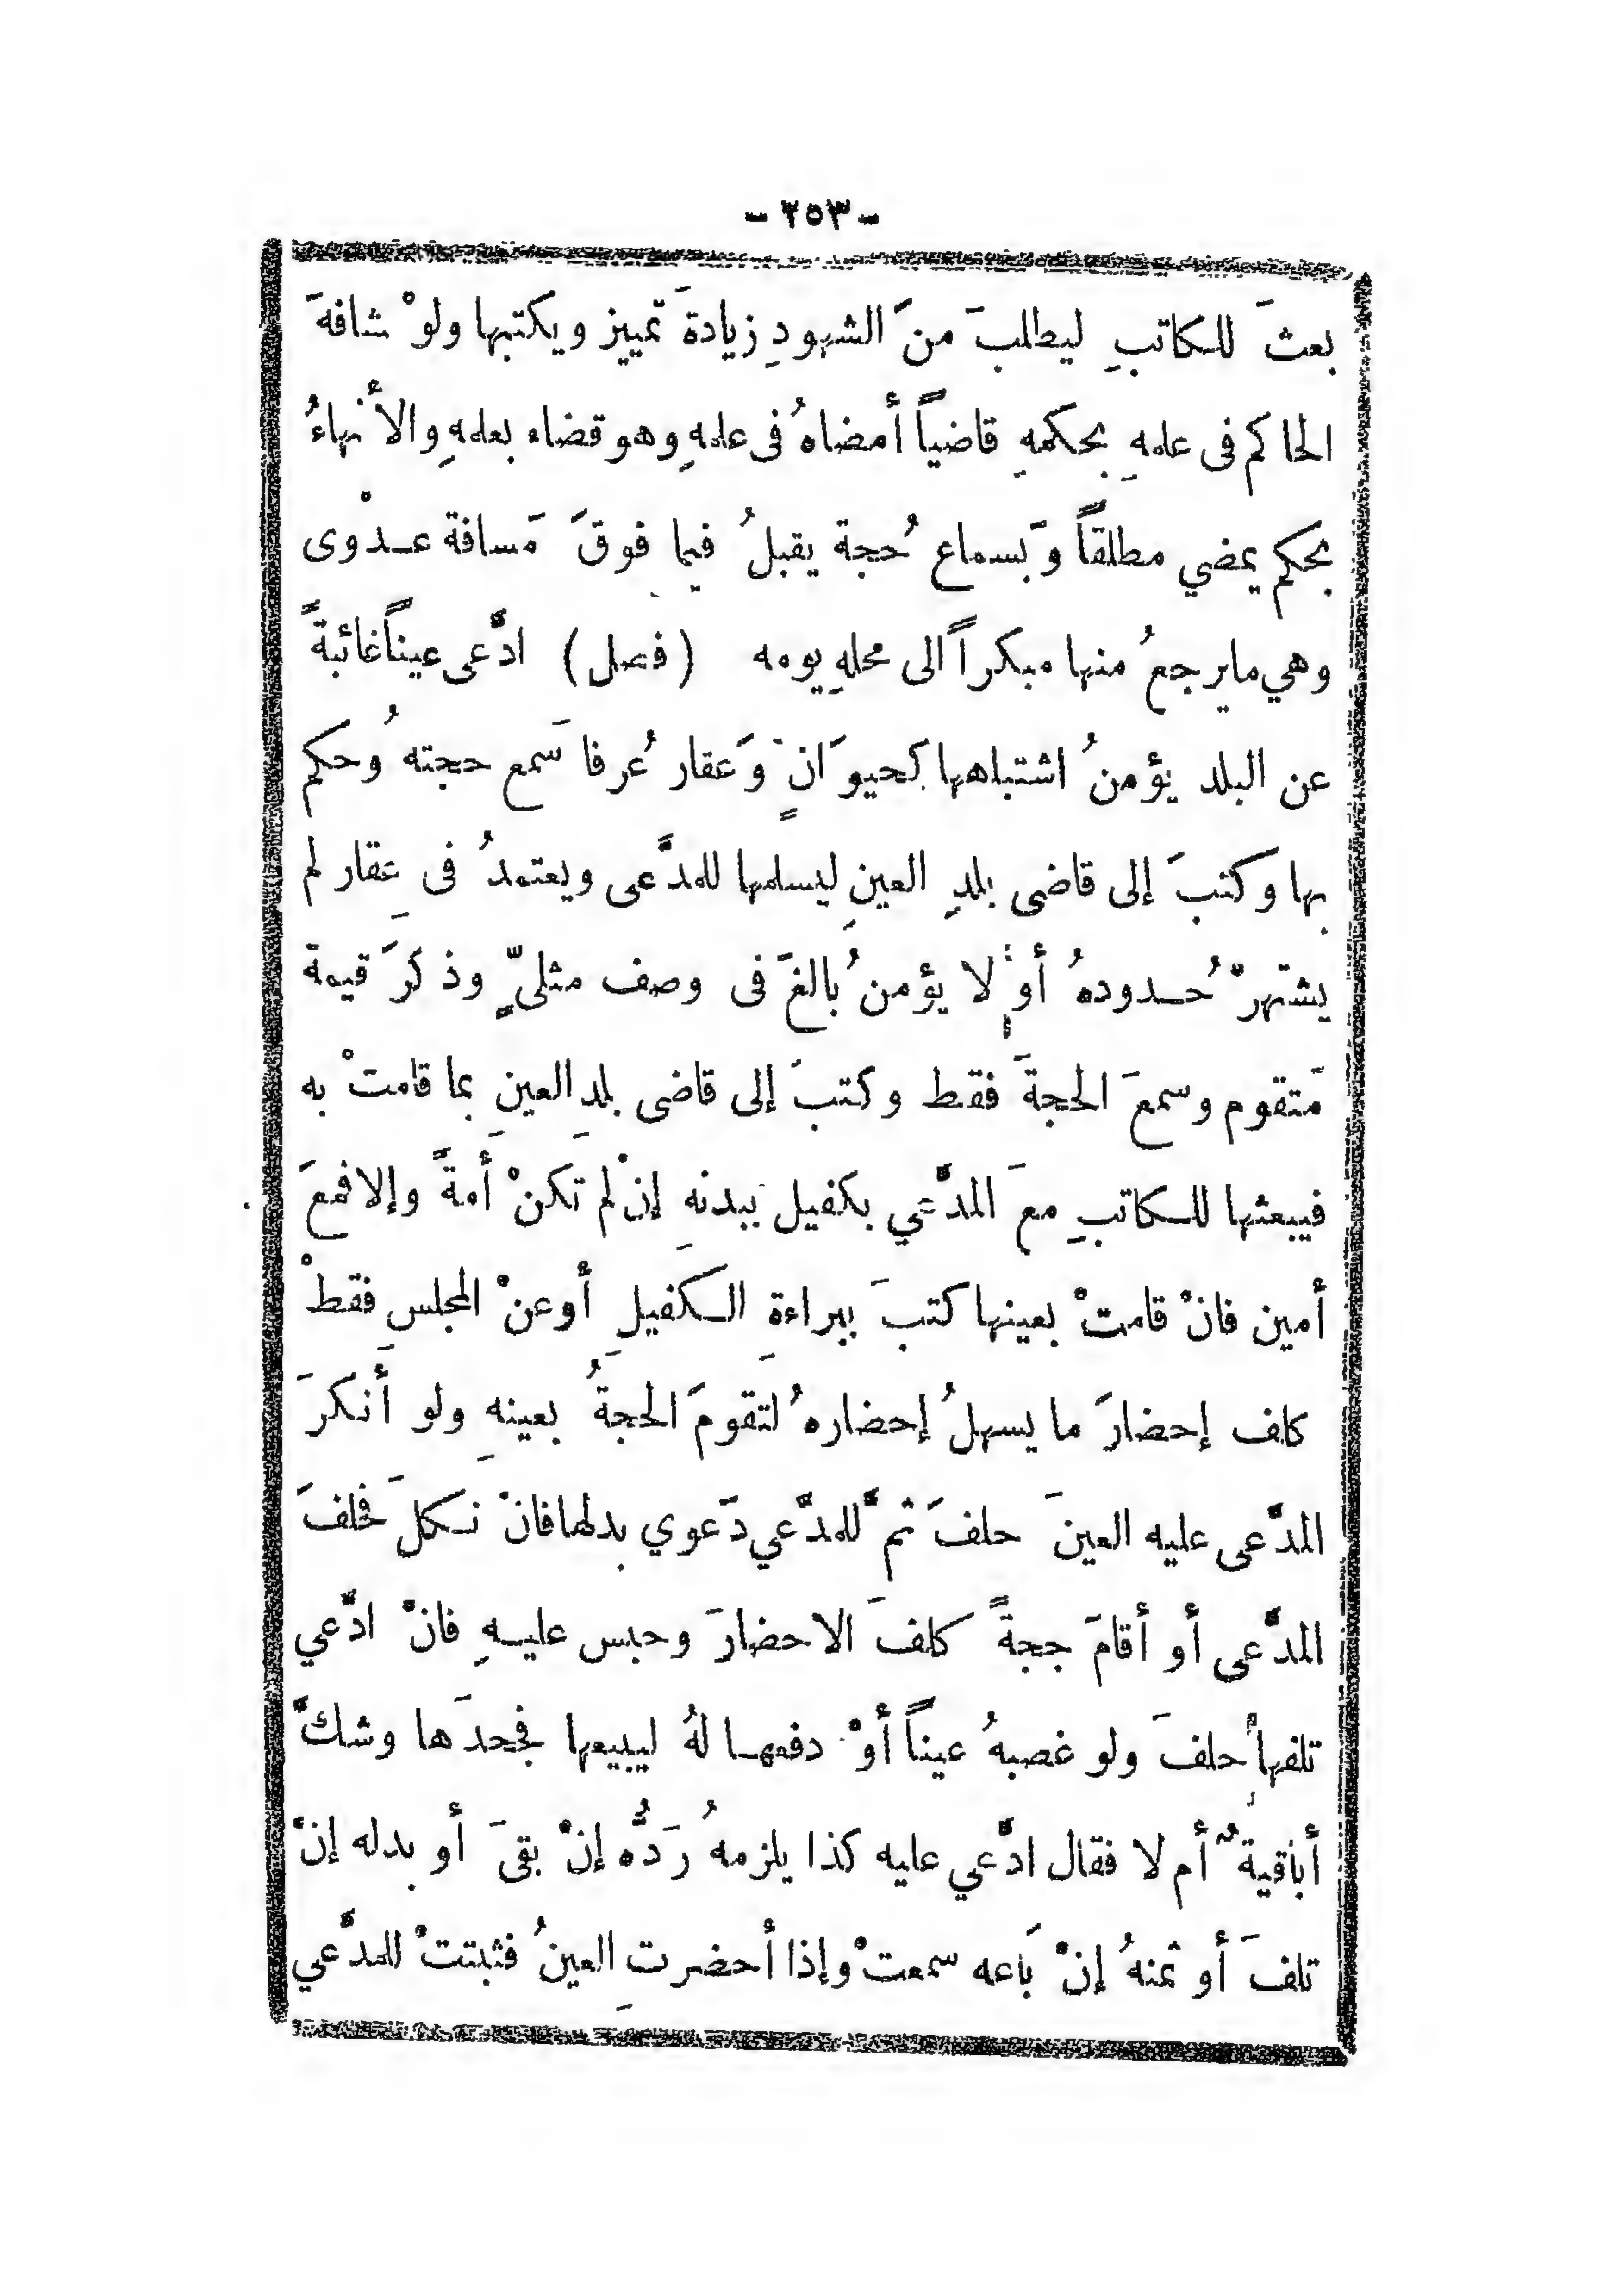 - ٢٥٣ -
بعثَ للكاتبِ ليطلبَ منَ الشهودِ زيادةَ تمييز ويكتبها ولوْ شافهَ
الحاكم فى عملهِ بحكمهِ قاضياً أمضاهُ فى عملهِ وهو قضاء بعلمهِ والأنهاءُ
بحكمٍ يمضي مطلقاً وَبسماع حُجة يقبلُ فيما فوقَ مَسافة عـدْوى
وهي مايرجعُ منها مبكراً الى محلهِ يومه (فصل) ادَّعى عيناً غائبةً
عن البلد يؤمنُ اشتباهها كحيوَانٍ وَعَقار عُرفا سَمع حجتهُ وحكم
بها وكتبَ إلى قاضى بلدِ العينِ ليسلمها للمدَّعى ويعتمدُ فى عِقار لم
يشتهرْ حُـدودهُ أو لا يؤمنُ بالغَ فى وصف مثلىّ وذكرَ قيمة
مَتقوم وسمعَ الحجةَ فقط وكتبَ إلى قاضى بلدِ العينِ بما قامتْ به
فيبعثها للـكاتبِ معَ المدَّعي بكفيل ببدنهِ إنْ لم تكنْ أمةً وإلا فمعَ
أمين فانْ قامتْ بعينها كتبَ ببراءةِ الـكفيلِ أوعنْ المجلسِ فقطْ
كلف إحضارَ ما يسهلُ إحضارهُ لتقومَ الحجةُ بعينهِ ولو أنكرَ
المدَّعى عليه العينَ حلفَ ثمَّ للمدَّعي دَعوي بدلها فانْ نـكلَ فحلفَ
المدَّعى أو أقامَ حجةً كلفَ الاحضارَ وحبس عليـهِ فانْ ادَّعي
تلفها حلفَ ولو غصبهُ عيناً أوْ دفعهـا لهُ ليبيعها فجحدَها وشكَّ
أباقيةٌ أم لا فقال ادَّعي عليه كذا يلزمهُ رَدُّه إنْ بقىَ أو بدله إنْ
تلفَ أو ثمنهُ إنْ بَاعه سمعتْ وإذا أحضرتِ العينُ فثبتتْ للمدَّعي